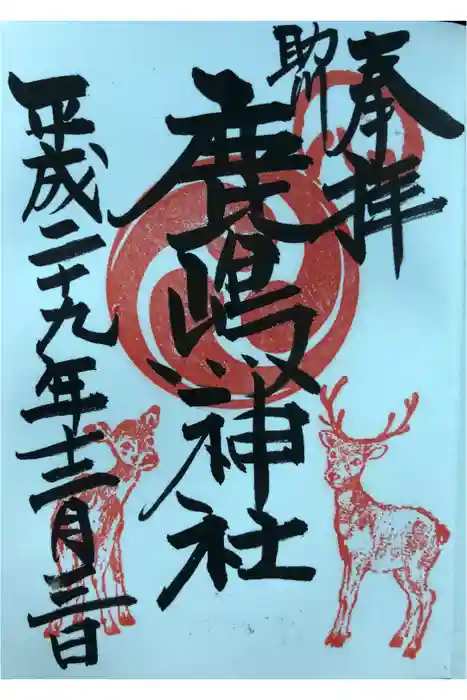 奉拝
助川
鹿嶋神社
平成二十九年十二月三日